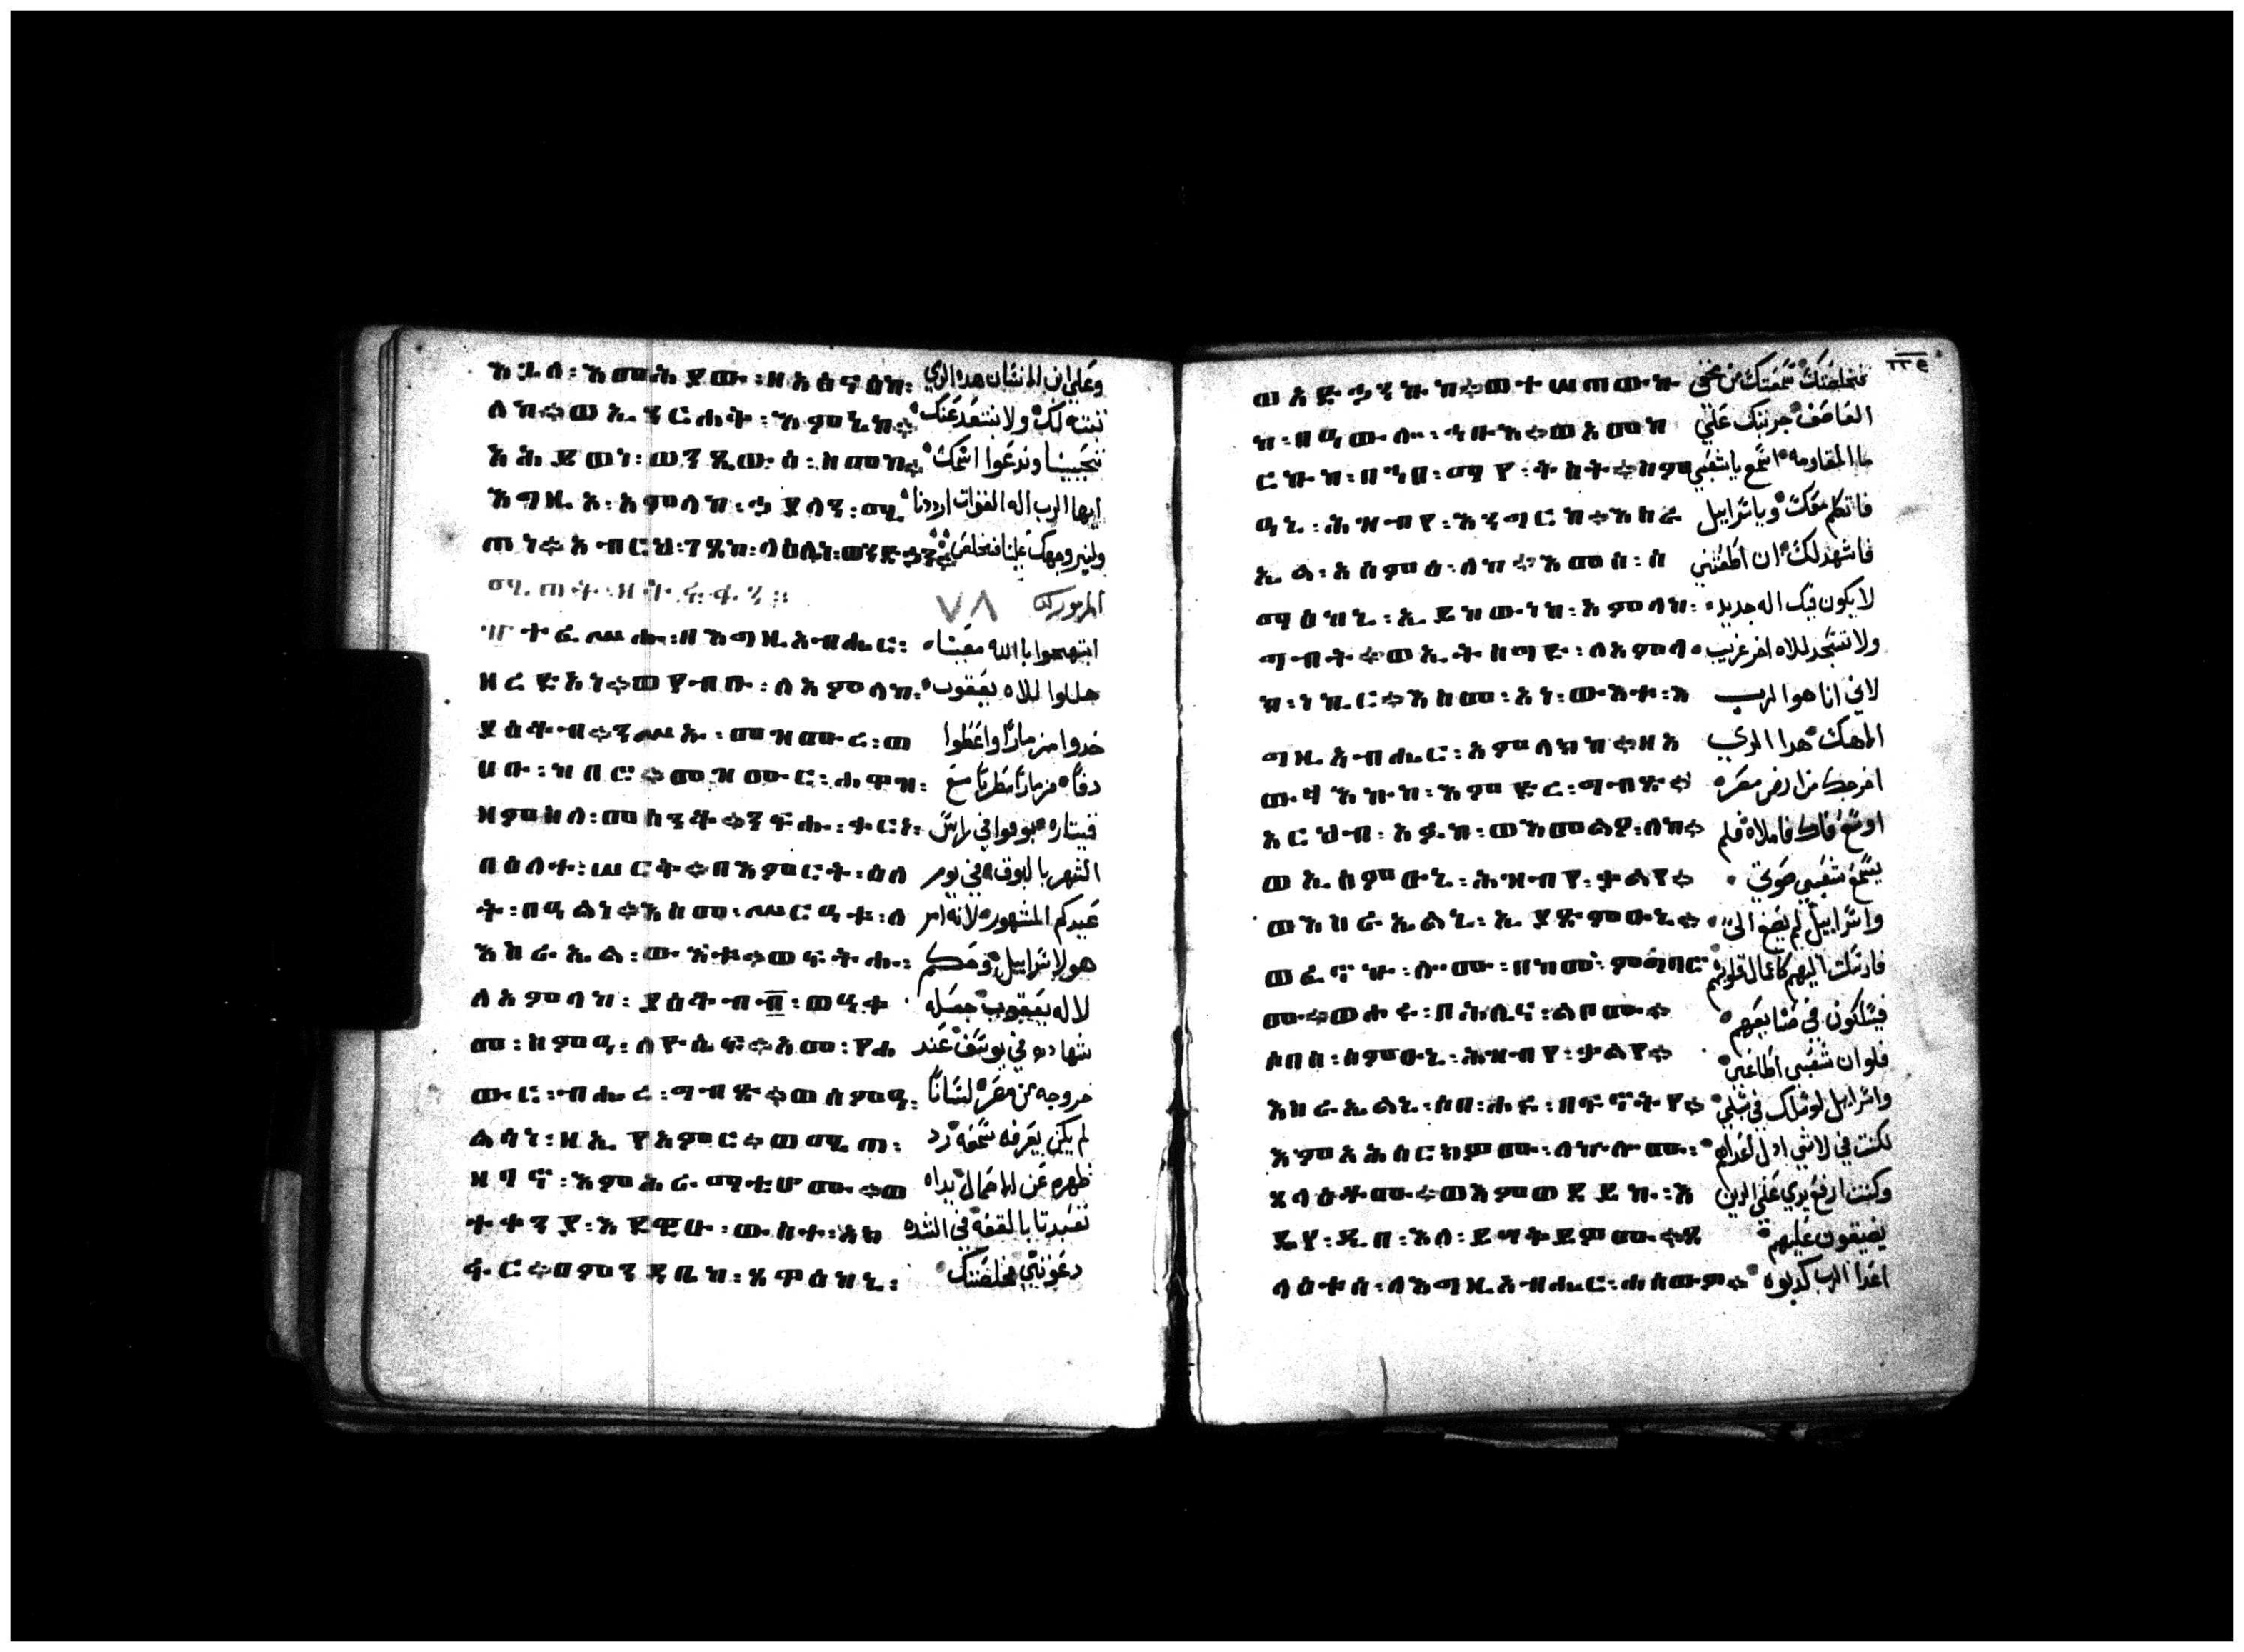 እጓለ፡እመሕያው፡ዘአጽናዕከ፡ وعلي ابن الانسان هدا الدي
ለከ።ወኢንርሐቅ፡እምኔከ። تبته لك ولا نبتعد عنك
አሕይወነ፡ወንጼውዕ፡ስመከ። تحيينا وندعوا اسمك
እግዚአ፡አምላከ፡ኃያላን፡ሚ ايها الرب اله القوات ارددنا
ጠነ።አብርህ፡ገጸከ፡ላዕሌነ፡ወንድኅን። ولينر وجهك علينا فنخلص
المزمور ٧٨
ተፈሥሑ፡በእግዚአብሔር፡ ابتهجوا باالله معيننا
ዘረድአነ።ወየብቡ፡ለአምላከ፡ هللوا للاه يعقوب
ያዕቆብ።ንሥኡ፡መዝሙረ፡ወ خدوا مزمارا واعطوا
ሀቡ፡ከበሮ።መዝሙር፡ሐዋዝ፡ دفا مزمارا مطربا مع
ዘምስለ፡መሰንቆ።ንፍሑ፡ቀርነ፡ قيتاره بوقوا في راس
በዕለተ፡ሠርቅ።በእምርት፡ዕለ الشهر بالبوق في يوم
ት፡በዓልነ።እስመ፡ሥርዓቱ፡ለ عيدكم المشهور لانه امر
እስራኤል፡ውእቱ።ወፍትሑ፡ هو لاسراييل وحكم
ለአምላከ፡ያዕቆብ፡ لاله يعقوب جعله
መ፡ስምዓ፡ለዮሴፍ።አመ፡የሐ شهاده في يوسف عند
ውር፡ብሔረ፡ግብጽ።ወሰምዓ፡ خروجه من مصر لسانا
ልሳነ፡ዘኢየአምር።ወሜጠ፡ لم يكن يعرفه سمعه رد
ዘባኖ፡እምሕራማቲሆሙ።ወ ظهره عن الاحمال يداه
ተቀንያ፡እደዊሁ፡ውስተ፡አክ تعبدتا بالقفه في الشده
ፋር።በምንዳቤከ፡ጸዋዕከኒ፡ دعوتني فخلصتك
ወአድኃንኩከ።ወተሠጠውኩ فخلصتك سمعتك من مخفي
ከ፡በዓውሎ፡ኅቡእ።ወአመከ العاصف جربتك علي
ርኩከ፡በኀበ፡ማየ፡ቅስት።ስም ما المقاومه اسمع يا شعبي
ዓኒ፡ሕዝብየ፡እንግርከ።እስራ فاتكلم معك ويا سراييل
ኤል፡አስምዕ፡ለከ።እመሰ፡ሰ فاشهد لك ان اطعتني
ማዕከኒ፡ኢይከውነከ፡አምላከ፡ لا يكون فيك اله جديد
ግብት።ወኢትስግድ፡ለአምላ ولا تسجد للاه اخر غريب
ከ፡ነኪር።እስመ፡አነ፡ውእቱ፡እ لاني انا هو الرب
ግዚአብሔር፡አምላክከ።ዘአ الاهك هدا الدي
ውፃእኩከ፡እምድረ፡ግብጽ። اخرجك من ارض مصر
አርኅብ፡አፉከ፡ወእመልዖ፡ለከ። اوسع فاك فاملاه فلم
ወኢሰምዑኒ፡ሕዝብየ፡ቃልየ። يسمع شعبي صوتي
ወእስራኤልኒ፡ኢያጽምዑኒ። واسراييل لم يصغ الي
ወፈኖኩ፡ሎሙ፡በከመ፡ምግባሮ فارسلت اليهم كاعمال قلوبهم
ሙ።ወሖሩ፡በሕሊና፡ልቦሙ። فيسلكون في صنايعهم
ሶበሰ፡ሰምዑኒ፡ሕዝብየ፡ቃልየ። فلو ان شعبي اطاعني
እስራኤልኒ፡ሶበ፡ሖሩ፡በፍኖትየ። واسراييل لو سلك في سبلي
እምአሕሰርክዎሙ፡ለኵሎሙ፡ لكنت في لاشي ادل اعداهم
ጸላዕቶሙ።ወእምወደይኩ፡እ وكنت ارفع يدي علي الدين
ዴየ፡ዲበ፡እለ፡ይሣቅይዎሙ።ጸ يضيقون عليهم
ላዕቱሰ፡ለእግዚአብሔር፡ሐሰውዎ። اعدا الرب كدبوه